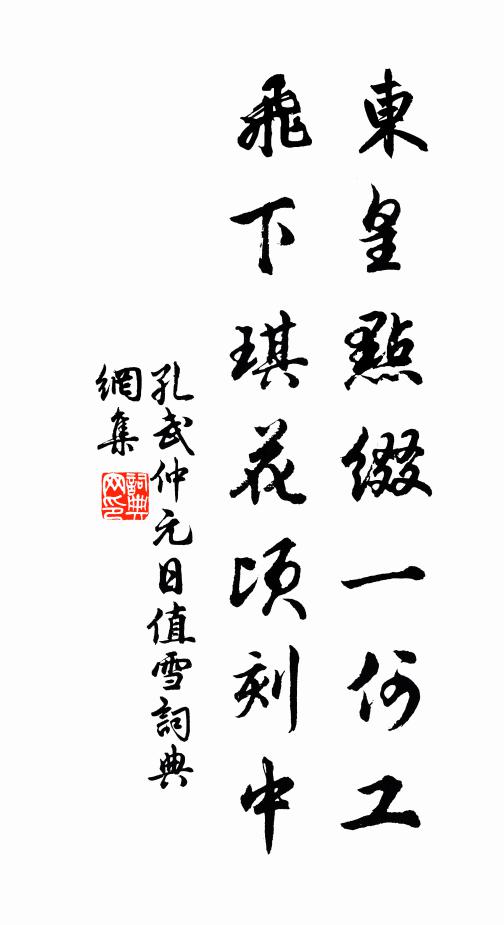 東皇點綴一何工
飛下琪花頃刻中
孔武仲元日值雪詞典
網集
詞典
网印